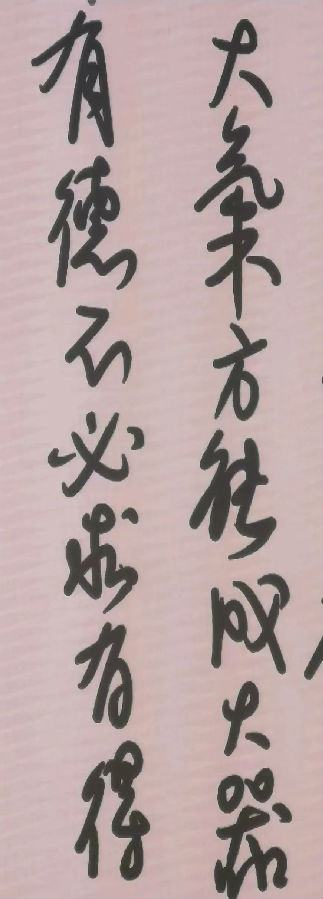 大氣方能成大器
有德不必求有得